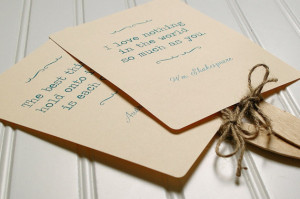 The best thi
hold onto
is each
I love nothing
in the world
so much as you.
Wm. Shakespeare